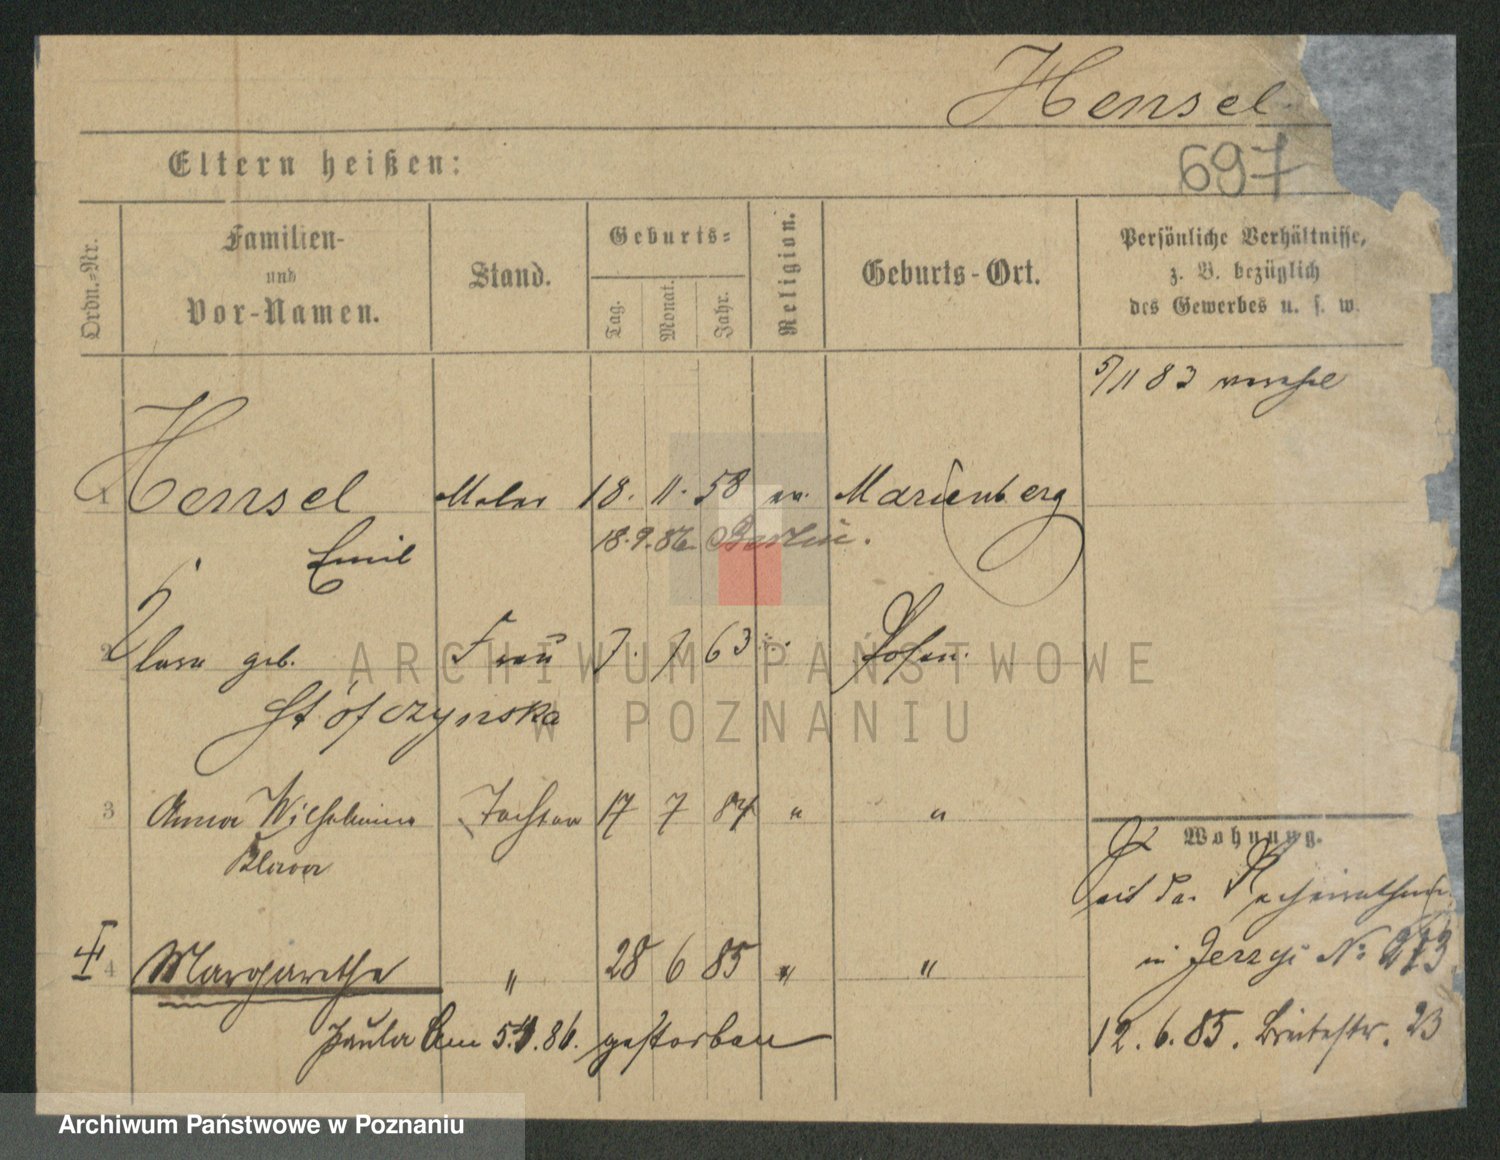 Hensel
697
Eltern heißen:
Ordn.-Nr.
Familien-
und
Vor-Namen.
Stand.
Geburts-
Tag.
Monat.
Jahr.
Religion.
Geburts-Ort.
Persönliche Verhältnisse,
z. B. bezüglich
des Gewerbes u. s. w.
5/11 83
1 Hensel Maler 18. 11. 58 ev. Marienberg
Emil 18.9.86. Berlin.
2 Clara geb. Frau 7. 7 63 Posen.
3 Anna Wilhelmine Tochter 17 7 84 " "
Klara
Wohnung.
Seit der
in Jerzyc No 273
4 Margarethe " 28 6 85 " "
Paula Am 5. 86. gestorben
12. 6. 85. Breitestr. 23
ARCHIWUM PAŃSTWOWE
W POZNANIU
Archiwum Państwowe w Poznaniu